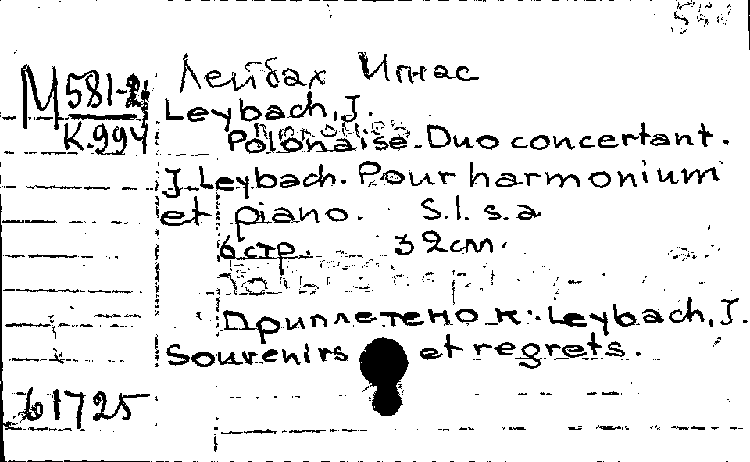 М 581-2
К.994
Лейбах Игнас
Leybach, J.
Polonaise. Duo concertant.
J. Leybach. Pour harmonium
et piano. S.l. s.a
6 стр. 32 см.
Приплетено к: Leybach, J.
Souvenirs et regrets.
61725